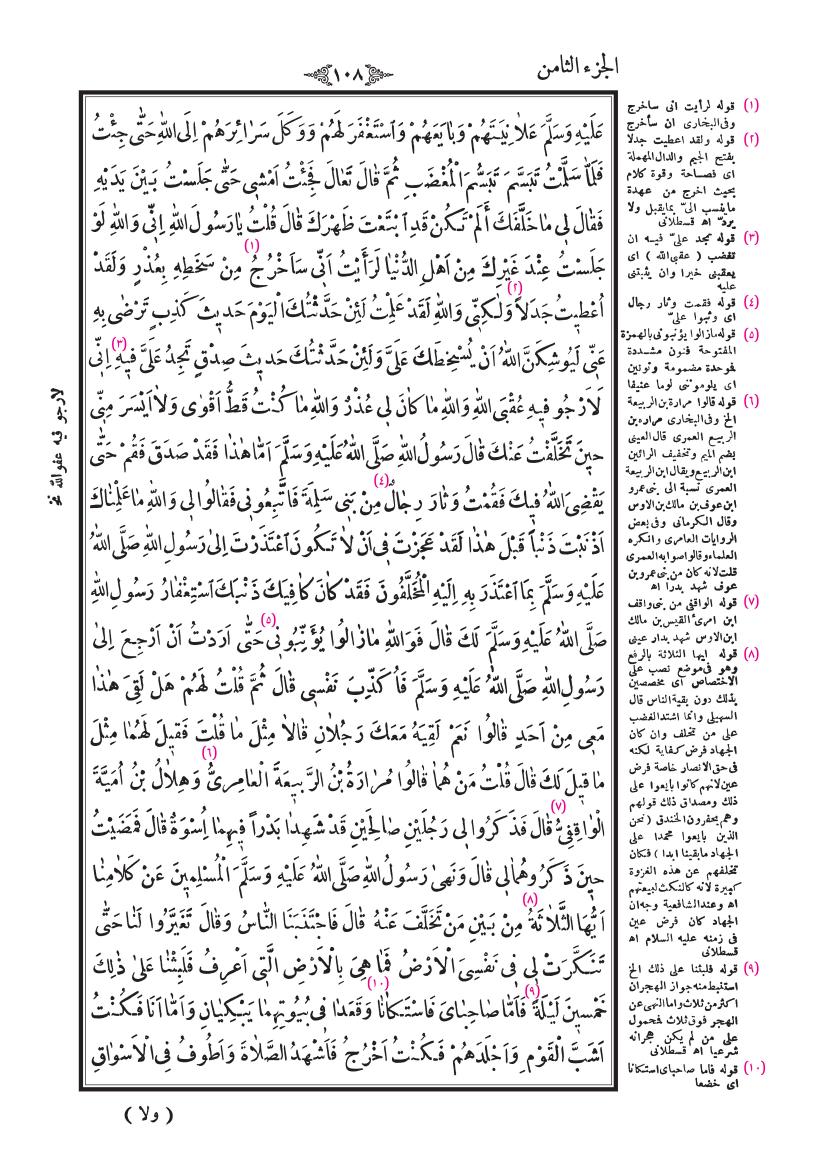 الجزء الثامن
١٠٨
عَلَيْهِ وَسَلَّمَ عَلَانِيَتَهُمْ وَبَايَعَهُمْ وَاسْتَغْفَرَ لَهُمْ وَوَكَلَ سَرَائِرَهُمْ اِلَى اللهِ حَتَّى جِئْتُ
فَلَمَّا سَلَّمْتُ تَبَسَّمَ تَبَسُّمَ الْمُغْضَبِ ثُمَّ قَالَ تَعَالَ فَجِئْتُ اَمْشِى حَتَّى جَلَسْتُ بَيْنَ يَدَيْهِ
فَقَالَ لِى مَا خَلَّفَكَ اَلَمْ تَكُنْ قَدِ ابْتَعْتَ ظَهْرَكَ قَالَ قُلْتُ يَارَسُولَ اللهِ اِنِّى وَاللهِ لَوْ
جَلَسْتُ عِنْدَ غَيْرِكَ مِنْ اَهْلِ الدُّنْيَا لَرَأَيْتُ اَنِّى سَاَخْرُجُ (١) مِنْ سَخَطِهِ بِعُذْرٍ وَلَقَدْ
اُعْطِيتُ جَدَلاً (٢) وَلَكِنِّى وَاللهِ لَقَدْ عَلِمْتُ لَئِنْ حَدَّثْتُكَ الْيَوْمَ حَدِيثَ كَذِبٍ تَرْضَى بِهِ
عَنِّى لَيُوشِكَنَّ اللهُ اَنْ يُسْخِطَكَ عَلَىَّ وَلَئِنْ حَدَّثْتُكَ حَدِيثَ صِدْقٍ تَجِدُ عَلَىَّ فِيهِ (٣) اِنِّى
لَاَرْجُو فِيهِ عُقْبَى اللهِ وَاللهِ مَا كَانَ لِى عُذْرٌ وَاللهِ مَا كُنْتُ قَطُّ اَقْوَى وَلَا اَيْسَرَ مِنِّى
حِينَ تَخَلَّفْتُ عَنْكَ قَالَ رَسُولُ اللهِ صَلَّى اللهُ عَلَيْهِ وَسَلَّمَ اَمَّا هَذَا فَقَدْ صَدَقَ فَقُمْ حَتَّى
يَقْضِىَ اللهُ فِيكَ فَقُمْتُ وَثَارَ رِجَالٌ (٤) مِنْ بَنِى سَلِمَةَ فَاتَّبَعُونِى فَقَالُوا لِى وَاللهِ مَا عَلِمْنَاكَ
اَذْنَبْتَ ذَنْباً قَبْلَ هَذَا لَقَدْ عَجَزْتَ فِى اَنْ لَا تَكُونَ اعْتَذَرْتَ اِلَى رَسُولِ اللهِ صَلَّى اللهُ
عَلَيْهِ وَسَلَّمَ بِمَا اعْتَذَرَ بِهِ اِلَيْهِ الْمُخَلَّفُونَ فَقَدْ كَانَ كَافِيَكَ ذَنْبَكَ اسْتِغْفَارُ رَسُولِ اللهِ
صَلَّى اللهُ عَلَيْهِ وَسَلَّمَ لَكَ قَالَ فَوَاللهِ مَازَالُوا يُؤَنِّبُونِى (٥) حَتَّى اَرَدْتُ اَنْ اَرْجِعَ اِلَى
رَسُولِ اللهِ صَلَّى اللهُ عَلَيْهِ وَسَلَّمَ فَاُكَذِّبَ نَفْسِى قَالَ ثُمَّ قُلْتُ لَهُمْ هَلْ لَقِىَ هَذَا
مَعِى مِنْ اَحَدٍ قَالُوا نَعَمْ لَقِيَهُ مَعَكَ رَجُلَانِ قَالَا مِثْلَ مَا قُلْتَ فَقِيلَ لَهُمَا مِثْلَ
مَا قِيلَ لَكَ قَالَ قُلْتُ مَنْ هُمَا قَالُوا مُرَارَةُ بْنُ الرَّبِيعَةَ (٦) الْعَامِرِىُّ وَهِلَالُ بْنُ اُمَيَّةَ
الْوَاقِفِىُّ (٧) قَالَ فَذَكَرُوا لِى رَجُلَيْنِ صَالِحَيْنِ قَدْ شَهِدَا بَدْراً فِيهِمَا اِسْوَةٌ قَالَ فَمَضَيْتُ
حِينَ ذَكَرُوهُمَا لِى قَالَ وَنَهَى رَسُولُ اللهِ صَلَّى اللهُ عَلَيْهِ وَسَلَّمَ الْمُسْلِمِينَ عَنْ كَلَامِنَا
اَيُّهَا الثَّلَاثَةُ (٨) مِنْ بَيْنِ مَنْ تَخَلَّفَ عَنْهُ قَالَ فَاجْتَنَبَنَا النَّاسُ وَقَالَ تَغَيَّرُوا لَنَا حَتَّى
تَنَكَّرَتْ لِى فِى نَفْسِىَ الْاَرْضُ فَمَا هِىَ بِالْاَرْضِ الَّتِى اَعْرِفُ فَلَبِثْنَا عَلَى ذَلِكَ
خَمْسِينَ لَيْلَةً (٩) فَاَمَّا صَاحِبَاىَ فَاسْتَكَانَا (١٠) وَقَعَدَا فِى بُيُوتِهِمَا يَبْكِيَانِ وَاَمَّا اَنَا فَكُنْتُ
اَشَبَّ الْقَوْمِ وَاَجْلَدَهُمْ فَكُنْتُ اَخْرُجُ فَاَشْهَدُ الصَّلَاةَ وَاَطُوفُ فِى الْاَسْوَاقِ
( ولا )
لارجو فيه عفو الله نخ
(١) قوله لرأيت انى ساخرج
وفى البخارى ان سأخرج
(٢) قوله ولقد اعطيت جدلا
بفتح الجيم والدال المهملة
اى فصاحة وقوة كلام
بحيث اخرج من عهدة
ما ينسب الىّ بما يقبل ولا
يردّ اه قسطلانى
(٣) قوله تجد علىّ فيه ان
تغضب ( عقبى الله ) اى
يعقبنى خيرا وان يثبتنى
عليه
(٤) قوله فقمت وثار رجال
اى وثبوا علىّ
(٥) قوله مازالوا يؤنبونى بالهمزة
المفتوحة فنون مشددة
فموحدة مضمومة ونونين
اى يلومونى لوما عنيفا
(٦) قوله قالوا مرارة بن الربيعة
الخ وفى البخارى مرارة بن
الربيع العمرى قال العينى
بضم الميم وتخفيف الرائين
ابن الربيع ويقال ابن الربيعة
العمرى نسبة الى بنى عمرو
ابن عوف بن مالك بن الاوس
وقال الكرمانى وفى بعض
الروايات العامرى وانكره
العلماء وقالوا صوابه العمرى
قلت لانه كان من بنى عمرو بن
عوف شهد بدرا اه
(٧) قوله الواقفى من بنى واقف
ابن امرئ القيس بن مالك
ابن الاوس شهد بدار عينى
(٨) قوله ايها الثلاثة بالرفع
وهو فى موضع نصب على
الاختصاص اى مخصصين
بذلك دون بقية الناس قال
السهيلى وانما اشتد الغضب
على من تخلف وان كان
الجهاد فرض كفاية لكنه
فى حق الانصار خاصة فرض
عين لانهم كانوا بايعوا على
ذلك ومصداق ذلك قولهم
وهم يحفرون الخندق ( نحن
الذين بايعوا محمدا على
الجهاد ما بقينا ابدا ) فكان
تخلفهم عن هذه الغزوة
كبيرة لانه كالنكث لبيعتهم
اه وعند الشافعية وجه ان
الجهاد كان فرض عين
فى زمنه عليه السلام اه
قسطلانى
(٩) قوله فلبثنا على ذلك الخ
استنبط منه جواز الهجران
اكثر من ثلاث واما النهى عن
الهجر فوق ثلاث فمحمول
على من لم يكن هجرانه
شرعيا اه قسطلانى
(١٠) قوله فاما صاحباى استكانا
اى خضعا